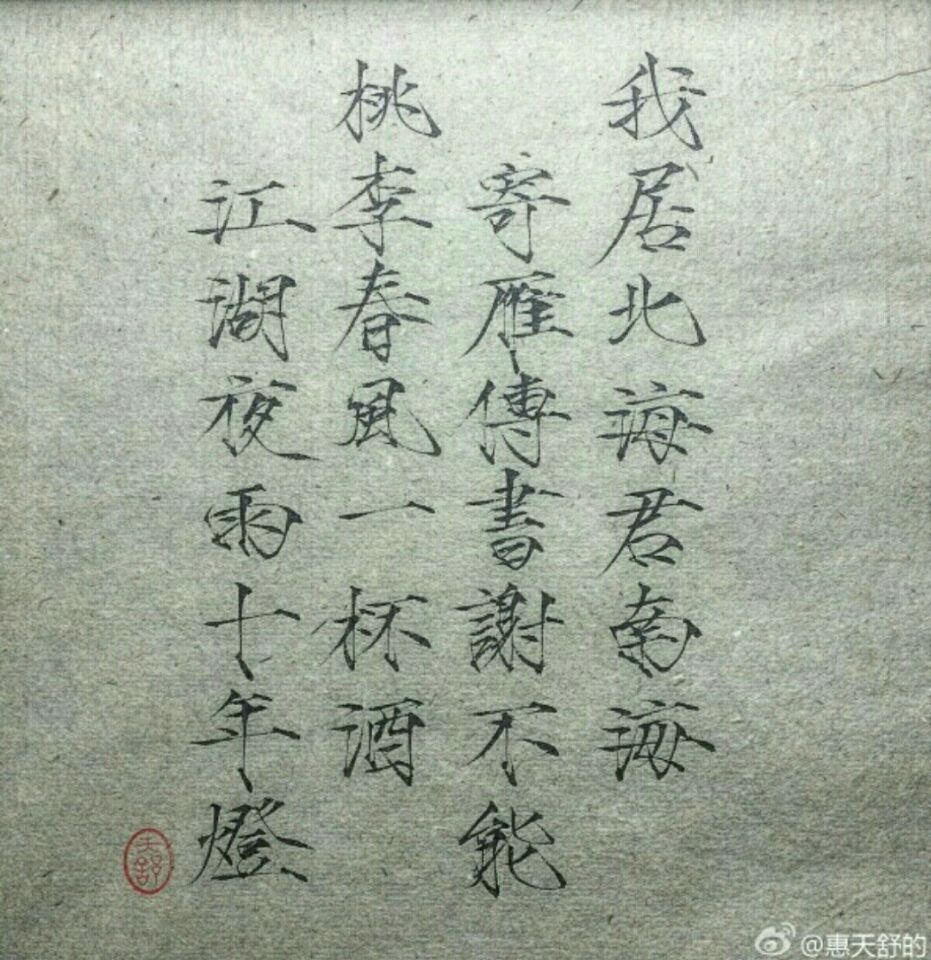 我居北海君南海
寄雁傳書謝不能
桃李春風一杯酒
江湖夜雨十年燈
天舒
@惠天舒的